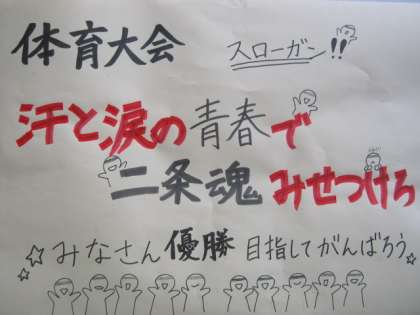 体育大会 スローガン!!
汗と涙の青春で
二条魂みせつけろ
☆みなさん優勝目指してがんばろう☆